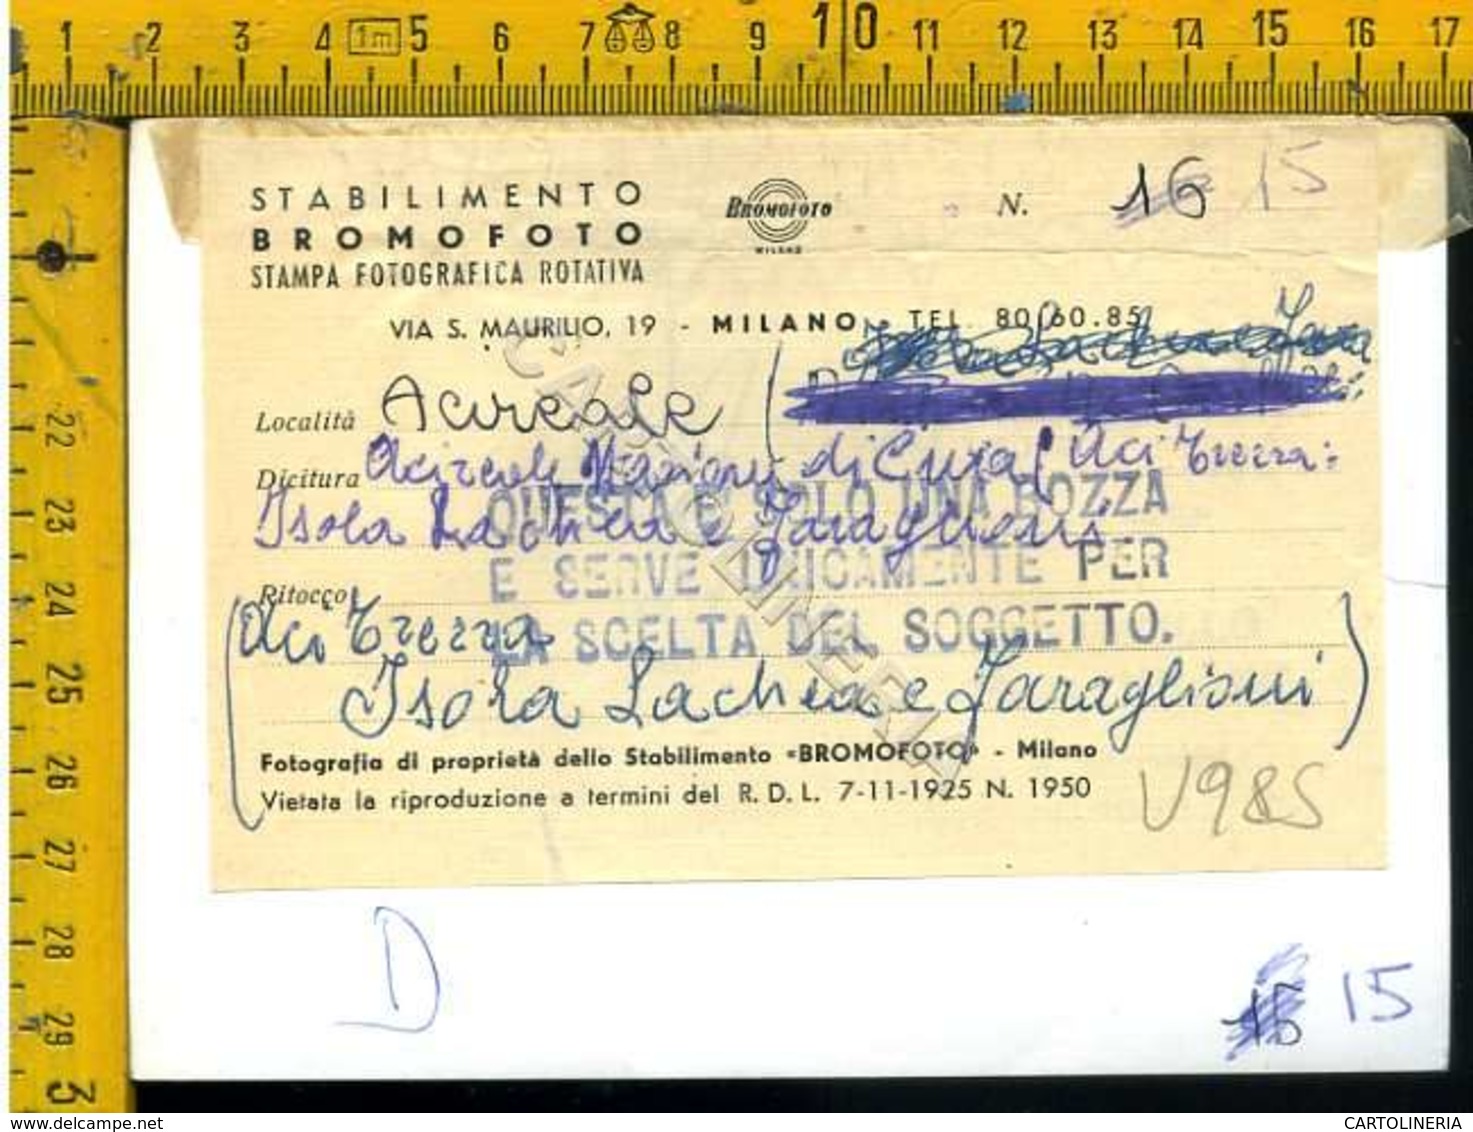 1 2 3 4 1m 5 6 7 8 9 10 11 12 13 14 15 16 17
STABILIMENTO
BROMOFOTO
STAMPA FOTOGRAFICA ROTATIVA
BROMOFOTO
MILANO
N. 16 15
VIA S. MAURILIO, 19 - MILANO - TEL. 80.60.85
Località Acireale (
Dicitura Acireale di Cura ( Aci Trezza:
Isola Lachea e Faraglioni
QUESTA E' SOLO UNA BOZZA
E SERVE UNICAMENTE PER
LA SCELTA DEL SOGGETTO.
Ritocco
(Aci Trezza
Isola Lachea e Faraglioni)
Fotografia di proprietà dello Stabilimento «BROMOFOTO» - Milano
Vietata la riproduzione a termini del R. D. L. 7-11-1925 N. 1950
V985
D
15 15
22
23
24
25
26
27
28
29
3
CARTOLINERIA